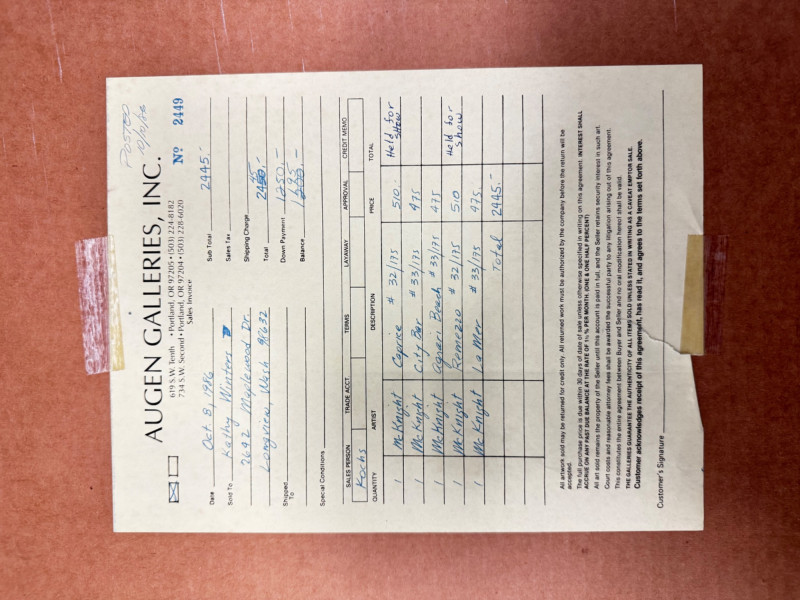 POSTED
AUGEN GALLERIES, INC.
619 S.W. Tenth • Portland, OR 97205 • (503) 224-8182
734 S.W. Second • Portland, OR 97204 • (503) 228-6020
Sales Invoice
Nº 2449
Date Oct. 8, 1986
Sold To Kathy Winters
2632 Maplewood Dr.
Longview, Wash 98632
Shipped To
Special Conditions
Sub Total 2445.-
Sales Tax
Shipping Charge
Total
Down Payment 1250.-
Balance
SALES PERSON TRADE ACCT. TERMS LAYAWAY APPROVAL CREDIT MEMO
Kochs
QUANTITY ARTIST DESCRIPTION PRICE TOTAL
1 McKnight Caprice # 32/175 510.- Held for show
1 McKnight City Bar # 33/175 475
1 McKnight Canari Beach # 33/175 475
1 McKnight Remezzo # 32/175 510 Held for show
1 McKnight La Mer # 33/175 475.
Total 2445.-
All artwork sold may be returned for credit only. All returned work must be authorized by the company before the return will be
accepted.
The full purchase price is due within 30 days of date of sale unless otherwise specified in writing on this agreement. INTEREST SHALL
ACCRUE ON ANY PAST DUE BALANCE AT THE RATE OF 1½ % PER MONTH. (ONE & ONE HALF PERCENT)
All art sold remains the property of the Seller until this account is paid in full, and the Seller retains security interest in such art.
Court costs and reasonable attorney fees shall be awarded the successful party to any litigation arising out of this agreement.
This constitutes the entire agreement between Buyer and Seller and no oral modification hereof shall be valid.
THE GALLERIES GUARANTEE THE AUTHENTICITY OF ALL ITEMS SOLD UNLESS STATED IN WRITING AS A CAVEAT EMPTOR SALE.
Customer acknowledges receipt of this agreement, has read it, and agrees to the terms set forth above.
Customer's Signature